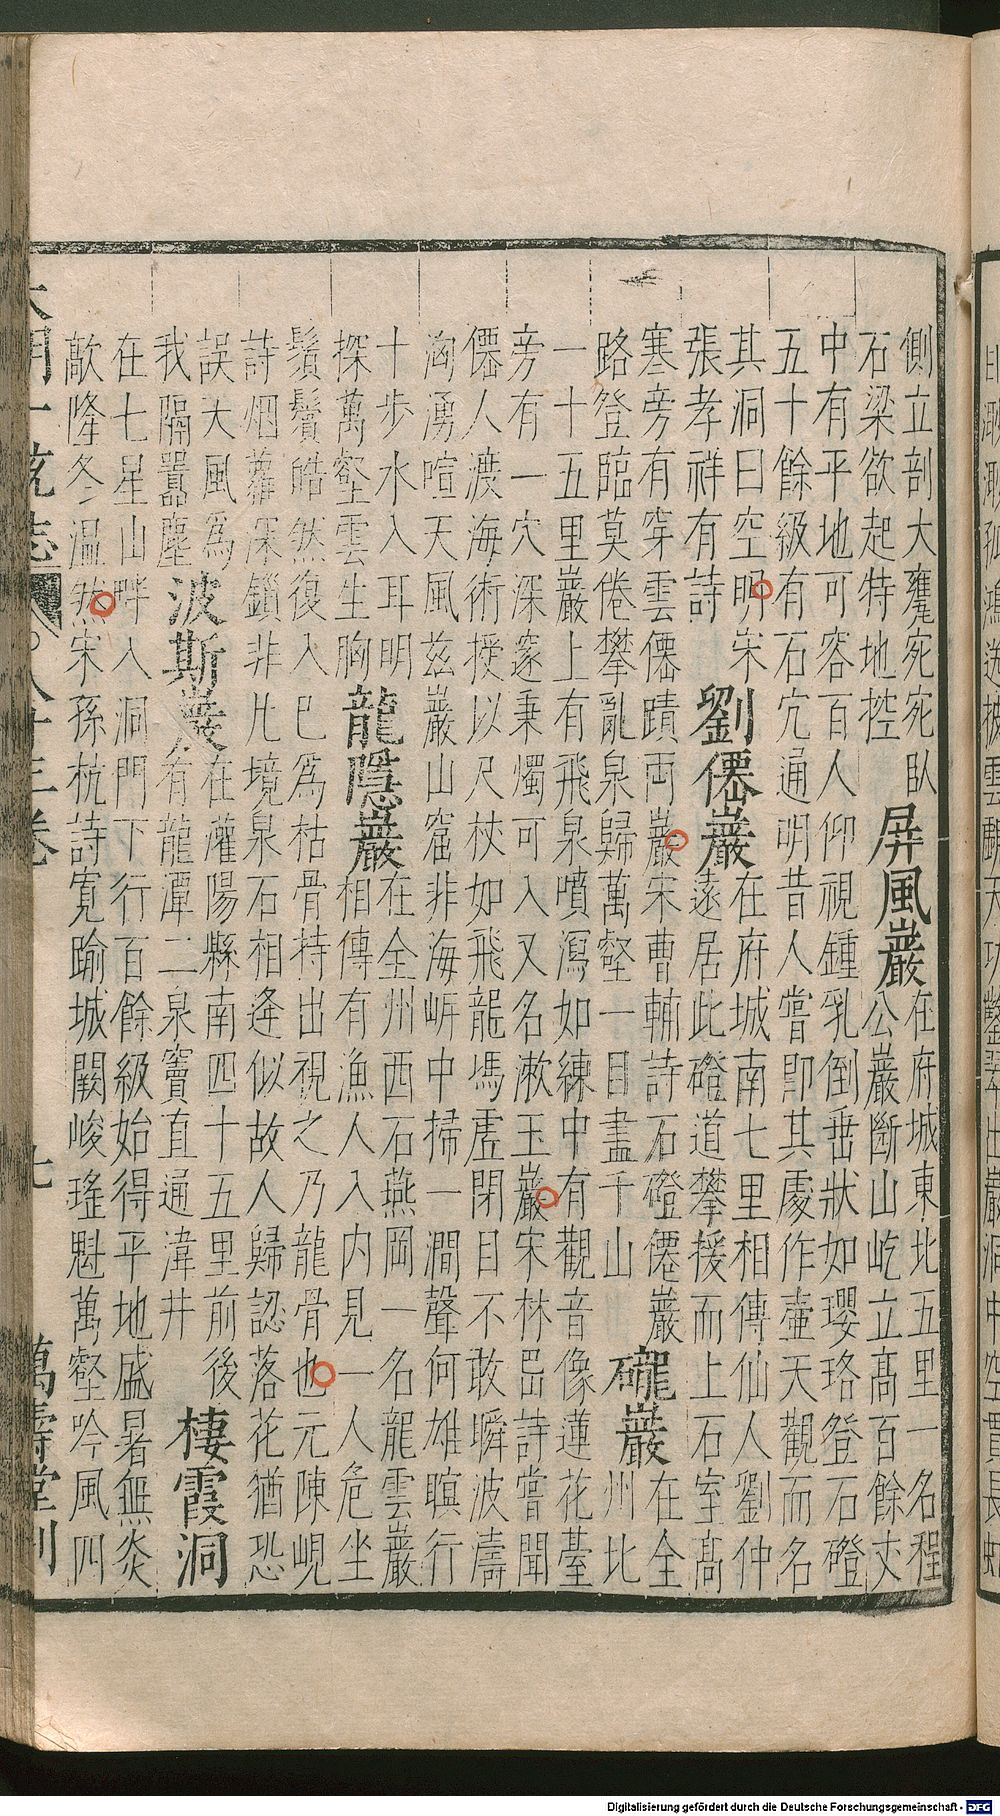 側立剖大甕宛宛臥
石梁欲起特地控
屏風巖
在府城東北五里一名程
公巖斷山屹立高百餘丈
中有平地可容百人仰視鍾乳倒垂狀如瓔珞登石磴
五十餘級有石穴通明昔人嘗即其處作壺天觀而名
其洞曰空明宋
張孝祥有詩
劉僊巖
在府城南七里相傳仙人劉仲
遠居此磴道攀援而上石室高
寒旁有穿雲僊蹟兩巖宋曹輔詩石磴僊巖
路登臨莫倦攀亂泉歸萬壑一目盡千山
礲巖
在全
州北
一十五里巖上有飛泉噴瀉如練中有觀音像蓮花臺
旁有一穴深邃秉燭可入又名漱玉巖宋林嵒詩嘗聞
僊人渡海術授以尺杖如飛龍馮虛閉目不敢瞬波濤
洶湧喧天風茲巖山窟非海㟁中掃一澗聲何雄瞑行
十步水入耳明
探萬壑雲生胸
龍隱巖
在全州西石燕岡一名龍雲巖
相傳有漁人入内見一人危坐
鬚鬢皓然復入已爲枯骨持出視之乃龍骨也元陳峴
詩烟蘿深鎖非凡境泉石相逄似故人歸認落花猶恐
誤大風爲
我隔囂塵
波斯巖
在灌陽縣南四十五里前後
有龍潭二泉竇直通湋井
棲霞洞
在七星山畔入洞門下行百餘級始得平地盛暑無炎
歊隆冬温然宋孫杭詩寛踰城闕峻瑤魁萬壑吟風四
大明一統志 八十三卷 七 萬壽堂刊
Digitalisierung gefördert durch die Deutsche Forschungsgemeinschaft - DFG